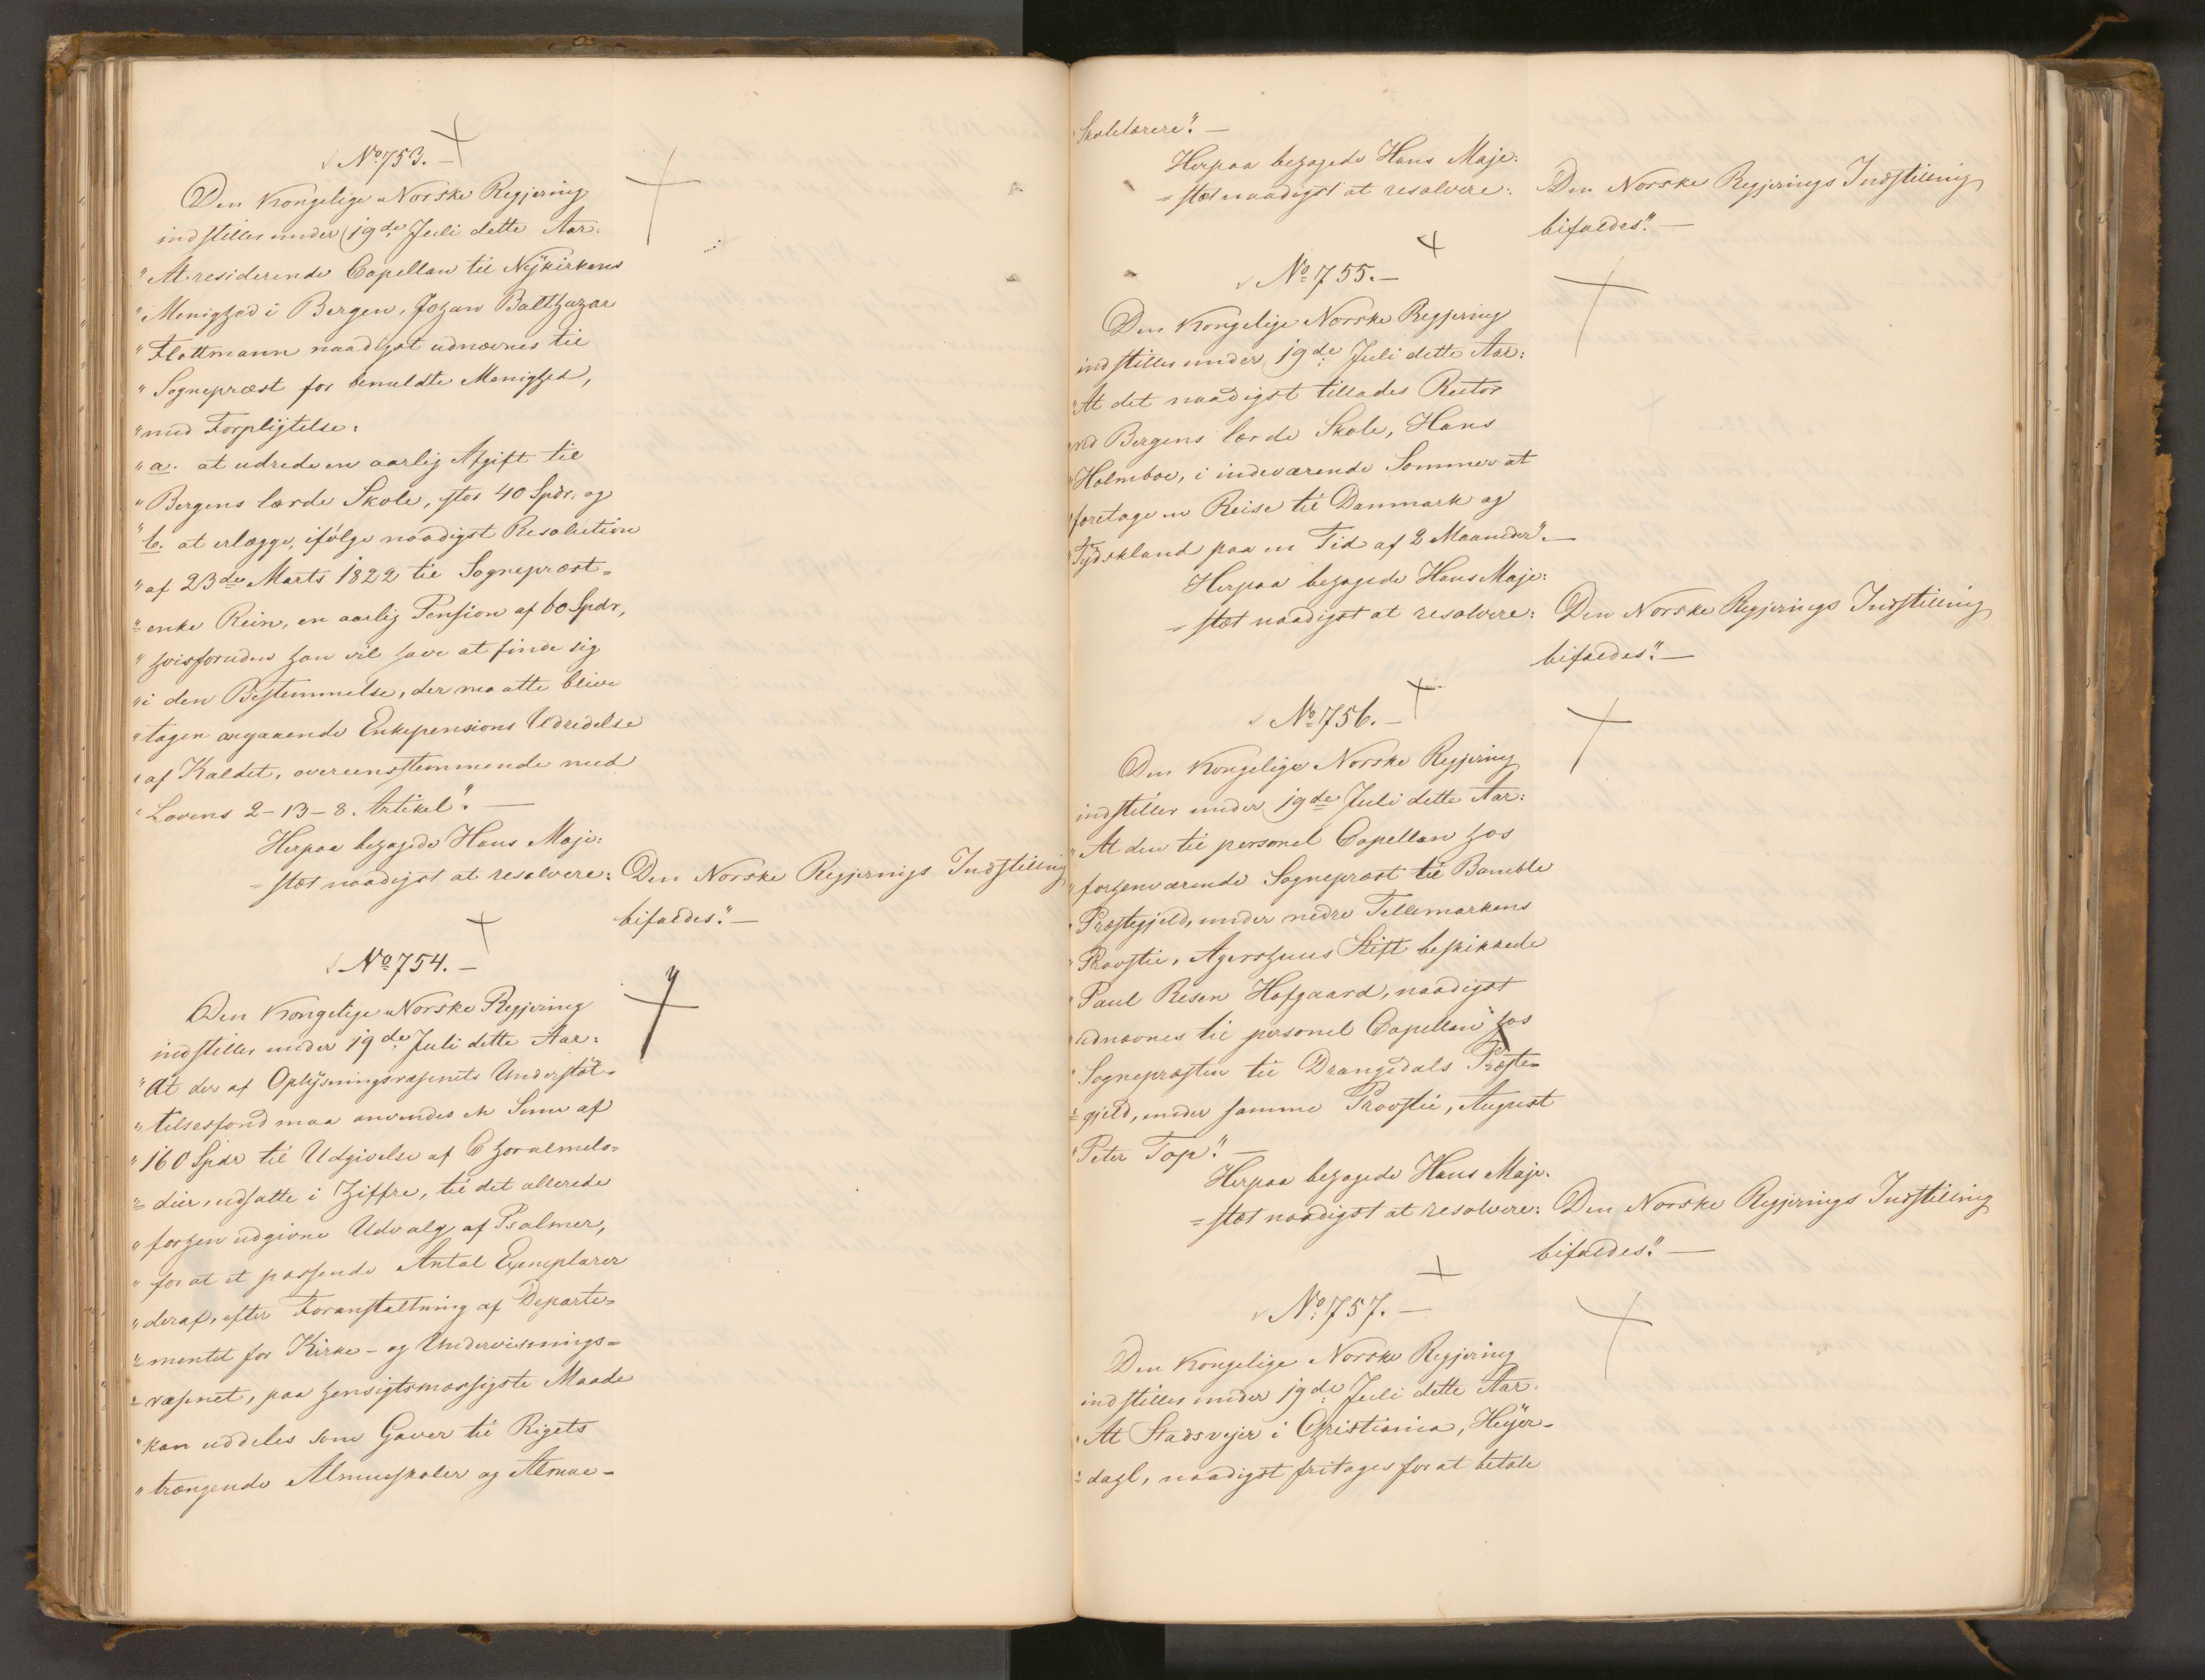 No 753. —
Den Kongelige Norske Regjering
indstiller under 19de Juli dette Aar:
"At residerende Capellan til Nykirkens
"Menighed i Bergen, Johan Balthazar
"Flottmann naadigst udnævnes til
"Sognepræst for bemeldte Menighed,
"med Forpligtelse:
"a. at udrede en aarlig Afgift til
"Bergens lærde Skole, stor 40 Spdr. og
"b. at erlægge, ifølge naadigst Resolution
"af 23de Marts 1822 til Sognepræst=
"=enke Rein, en aarlig Pension af 60 Spdr,
"hvisforuden han vil have at finde sig
"i den Bestemmelse, der maatte blive
"tagen angaaende Enkepensions Udredelse
"af Kaldet, overeensstemmende med
"Lovens 2-13-8. Artikel". —
Herpaa behagede Hans Maje:
=stæt naadigst at resolvere: Den Norske Regjerings Indstilling
bifaldes". —
No 754. —
Den Kongelige Norske Regjering
indstiller under 19de Juli dette Aar:
"At der af Oplysningsvæsenets Understøt=
"telsesfond maa anvendes en Sum af
"160 Spdr til Udgivelse af Choralmelo=
"=dier, udsatte i Ziffre, til det allerede
"forhen udgivne Udvalg af Psalmer,
"for at et passende Antal Exemplarer
"deraf, efter Foranstaltning af Departe=
"=mentet for Kirke- og Underviisnings=
"=væsenet, paa hensigtsmæssigste Maade
"kan uddeles som Gaver til Rigets
"trængende Almueskoler og Almue=
Skolelærere". —
Herpaa behagede Hans Maje:
=stæt naadigst at resolvere: Den Norske Regjerings Indstilling
bifaldes". —
No 755. —
Den Kongelige Norske Regjering
indstiller under 19de Juli dette Aar:
"At det naadigst tillades Rector
"ved Bergens lærde Skole, Hans
"Holmboe, i indeværende Sommer at
"foretage en Reise til Danmark og
"Tydskland paa en Tid af 2 Maaneder". —
Herpaa behagede Hans Maje:
=stæt naadigst at resolvere: Den Norske Regjerings Indstilling
bifaldes". —
No 756. —
Den Kongelige Norske Regjering
indstiller under 19de Juli dette Aar:
"At den til personel Capellan hos
"forhenværende Sognepræst til Bamble
"Præstegjeld, under nedre Tellemarkens
"Provstie, Agershuus Stift beskikkede
"Paul Resen Hofgaard, naadigst
"udnævnes til personel Capellan hos
"Sognepræsten til Drangedals Præste=
"=gjeld, under samme Provstie, August
"Peter Top". —
Herpaa behagede Hans Maje:
=stæt naadigst at resolvere: Den Norske Regjerings Indstilling
bifaldes". —
No 757. —
Den Kongelige Norske Regjering
indstiller under 19de Juli dette Aar:
"At Stadsvejer i Christiania, Heyer=
"=dahl, naadigst fritages for at betale